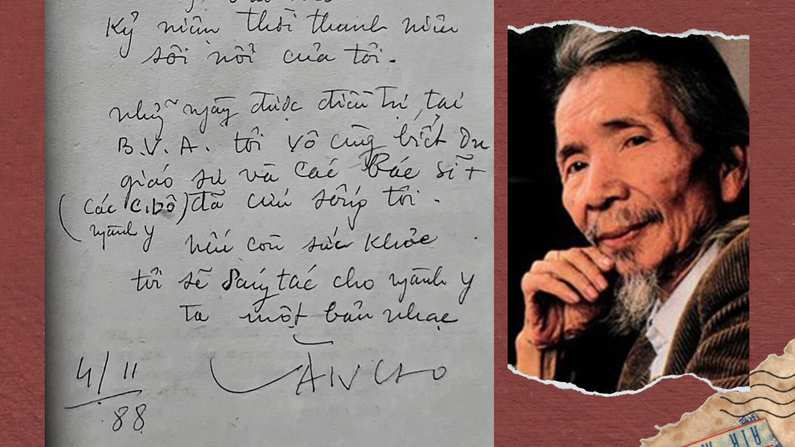 Kỷ niệm thời thanh niên
sôi nổi của tôi.
những ngày được điều trị tại
B.V.A. tôi vô cùng biết ơn
giáo sư và các Bác sĩ +
(các c.bộ) đã cứu sống tôi.
ngành y
nếu còn sức khỏe
tôi sẽ sáng tác cho ngành y
ta một bản nhạc
VĂN CAO
4/11
88